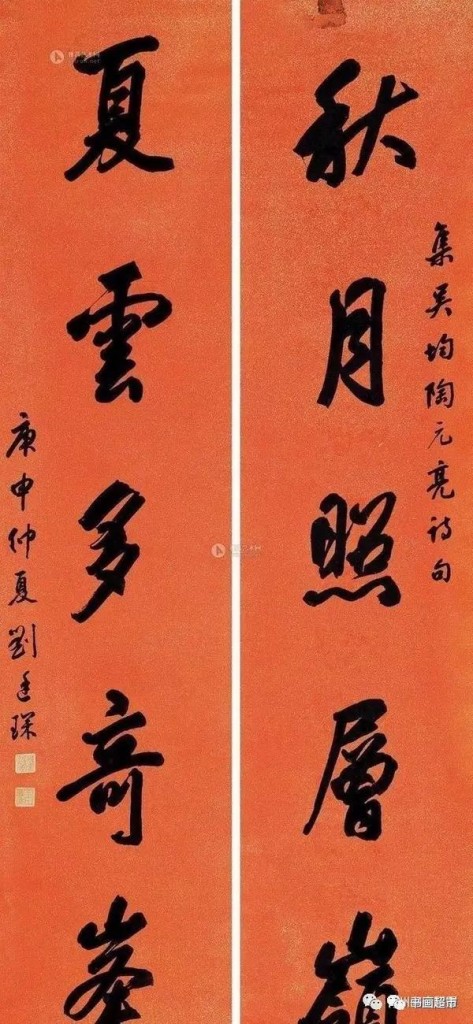 秋月照層嶺
集吳均陶元亮詩句
夏雲多竒峯
庚申仲夏劉廷琛
州书画超市